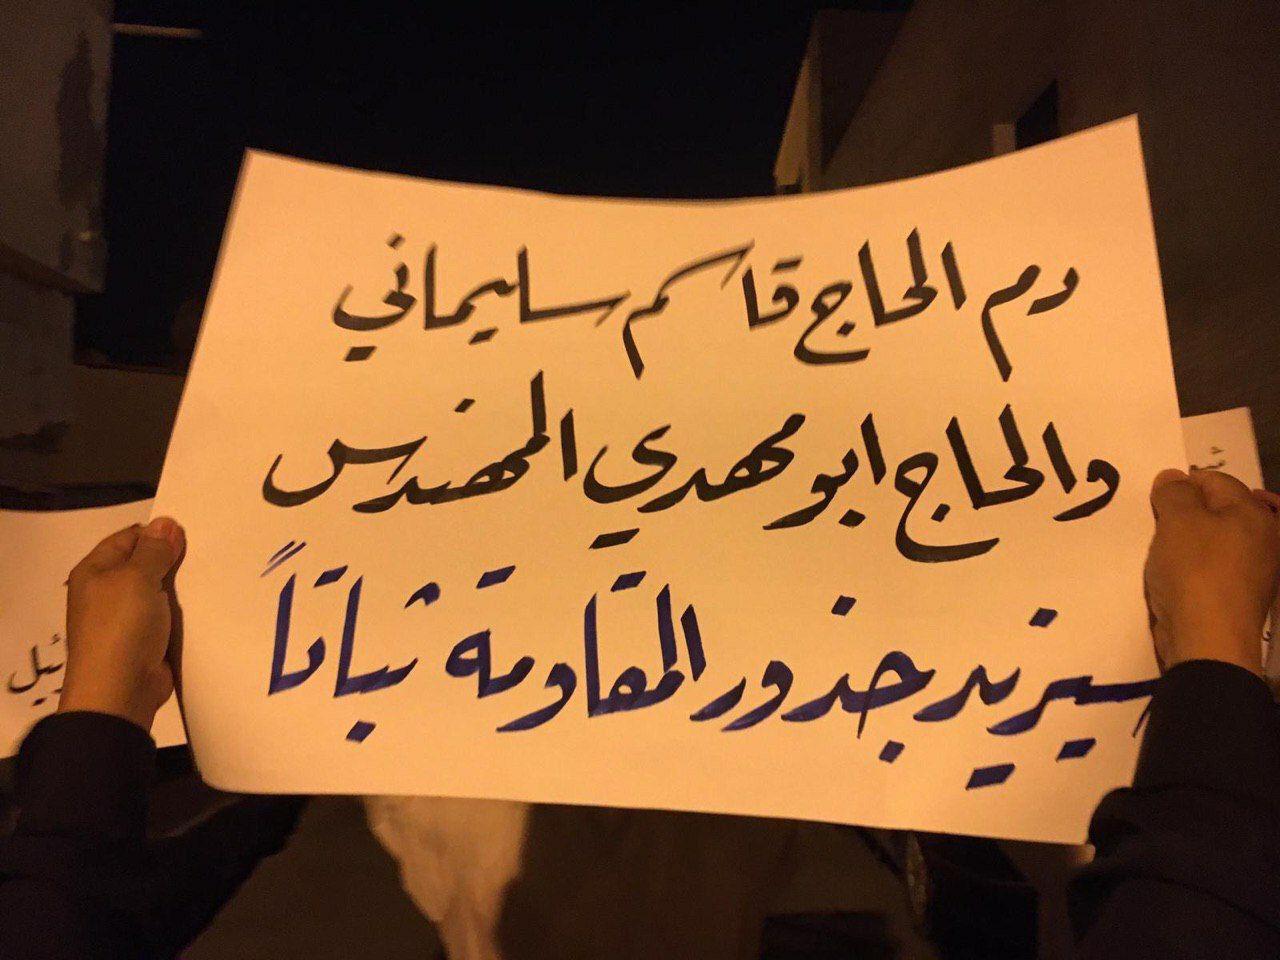 دم الحاج قاسم سليماني
والحاج ابو مهدي المهندس
سيزيد جذور المقاومة ثباتاً